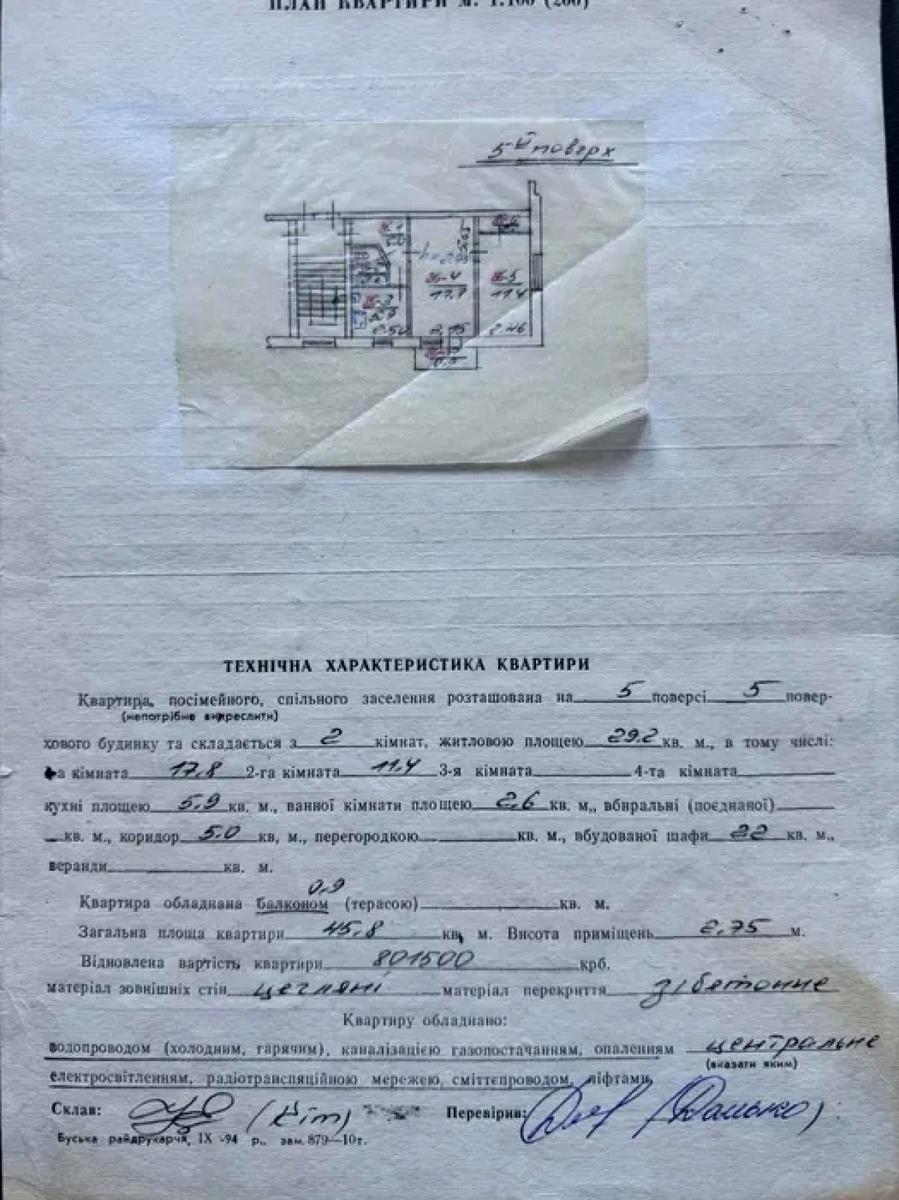 ПЛАН КВАРТИРИ М. 1:100 (200)
5й поверх
h=2.75
5.0
5.9
2.50
17.8
2.95
11.4
2.46
ТЕХНІЧНА ХАРАКТЕРИСТИКА КВАРТИРИ
Квартира, посімейного, спільного заселення розташована на 5 поверсі 5 повер-
(непотрібне викреслити)
хового будинку та складається з 2 кімнат, житловою площею 29.2 кв. м., в тому числі:
а кімната 17.8 2-га кімната 11.4 3-я кімната 4-та кімната
кухні площею 5.9 кв. м., ванної кімнати площею 2.6 кв. м., вбиральні (поєднаної)
кв. м., коридор 5.0 кв, м., перегородкою кв. м., вбудованої шафи 22 кв. м.,
веранди кв. м.
0.9
Квартира обладнана балконом (терасою) кв. м.
Загальна площа квартири 45.8 кв, м. Висота приміщень 2.75 м.
Відновлена вартість квартири 801500 крб.
матеріал зовнішніх стін цегляні матеріал перекриття з/бетонне
Квартиру обладнано:
водопроводом (холодним, гарячим), каналізацією газопостачанням, опаленням центральне
(вказати яким)
електросвітленням, радіотрансляційною мережею, сміттєпроводом, ліфтами
Склав: (Кіт) Перевірив:
Буська райдрукарня, ІХ -94 р., зам. 879—10т.